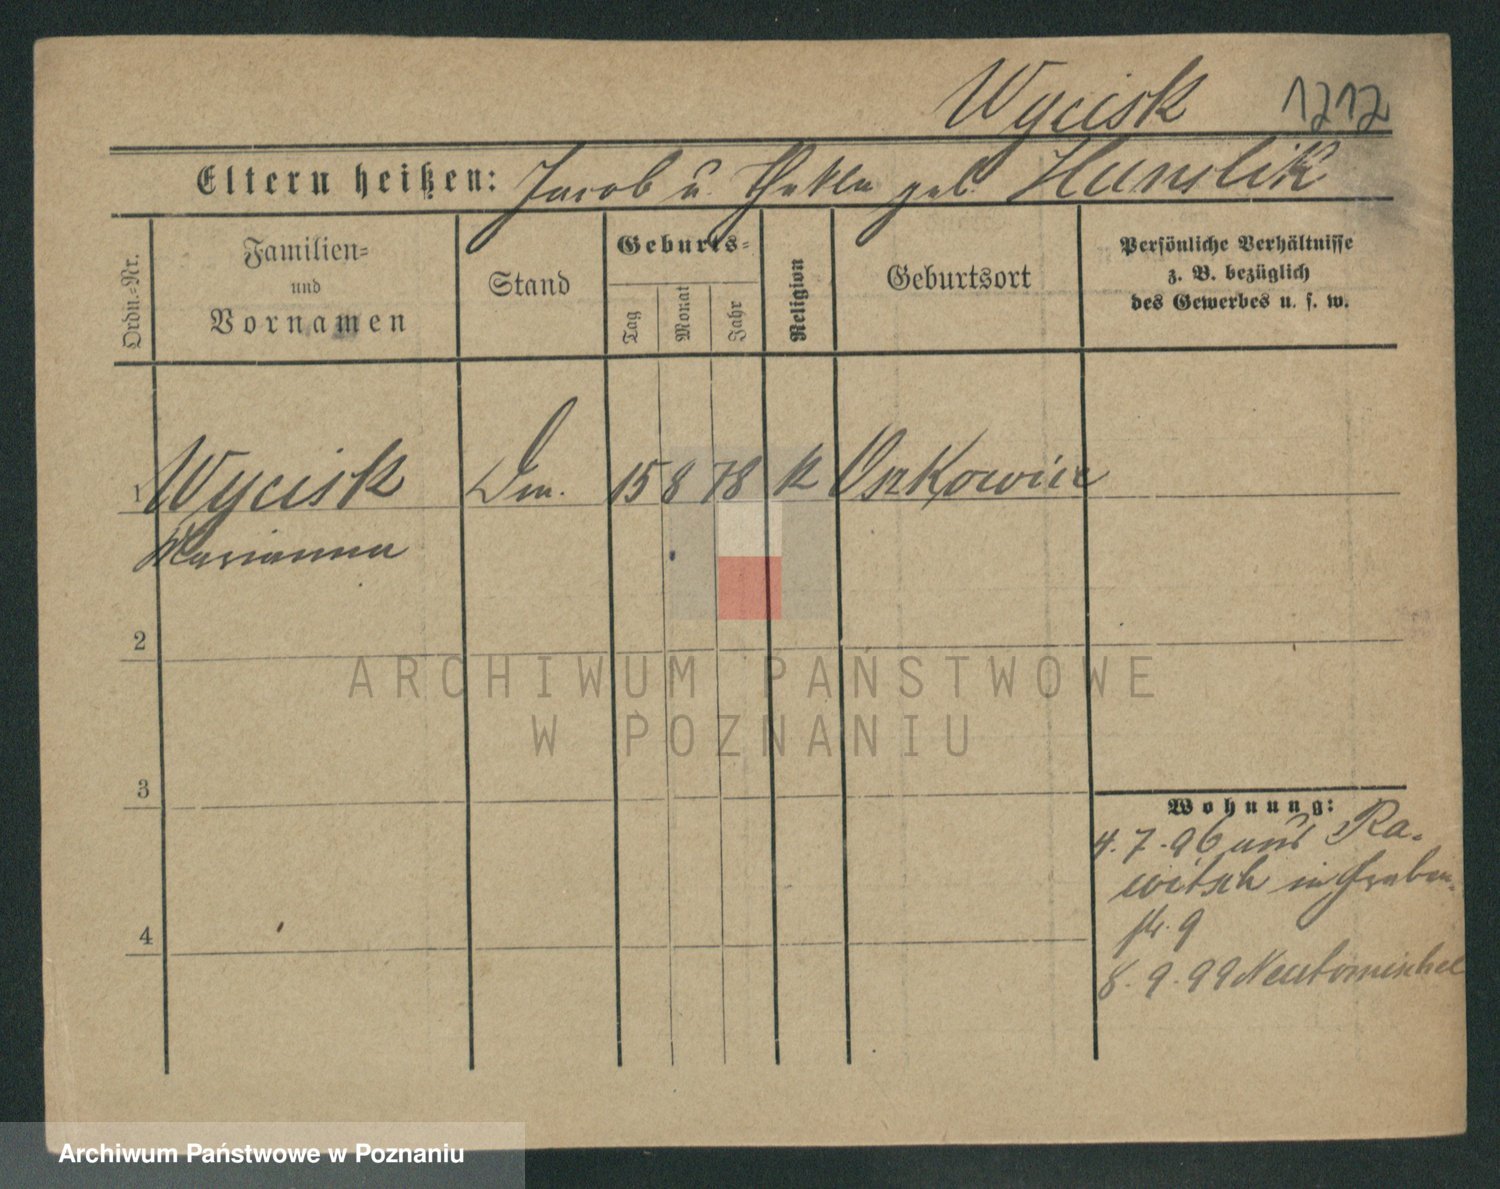 Wycisk 1212
Eltern heißen: Jacob u. Thekla geb. Hanslik
Ordn.-Nr.
Familien-
und
Vornamen
Stand
Geburts-
Tag
Monat
Jahr
Religion
Geburtsort
Persönliche Verhältnisse
z. B. bezüglich
des Gewerbes u. s. w.
1 Wycisk 15 8 78 k
Marianna
2
ARCHIWUM PAŃSTWOWE
W POZNANIU
3
Wohnung:
4. 7. 96 aus Ra-
witsch in Graben-
4
str. 9
8. 9. 99 Neutomischel
Archiwum Państwowe w Poznaniu